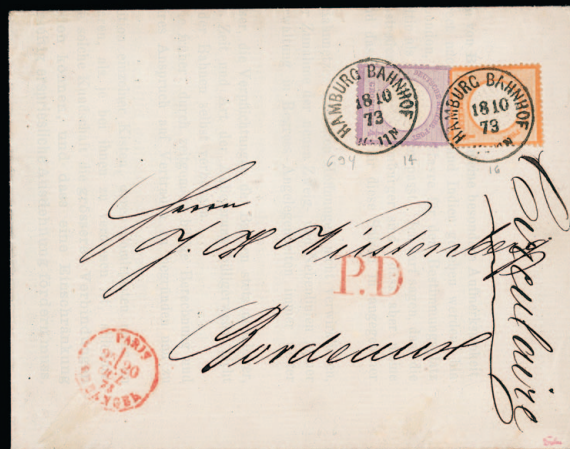 HAMBURG BAHNHOF
18 10
73
HAMBURG BAHNHOF
18 10
73
694 14 16
Herrn
J. H. Wüstenberg
P.D
Bordeaux
Circulaire
PARIS
20
73
ETRANGER